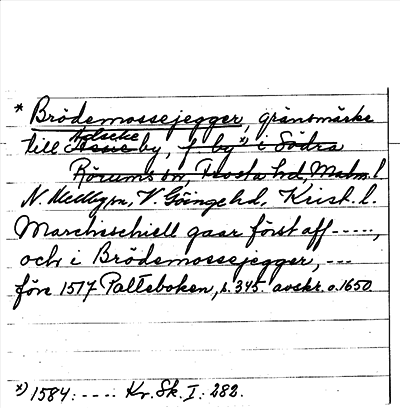 * Brödemossejegger, gränsmärke
till Assie Adseke by, f by x) i Södra
Rörums sn, Frosta hd, Malm. l
N. Mellby sn, V. Göinge hd, Krist. l.
Marchsschiell gaar först aff -----,
och i Brödemossejegger, ---
före 1517 Palteboken, s. 345 avskr. o. 1650
x) 1584: ---- Kr. Sk. I: 282.